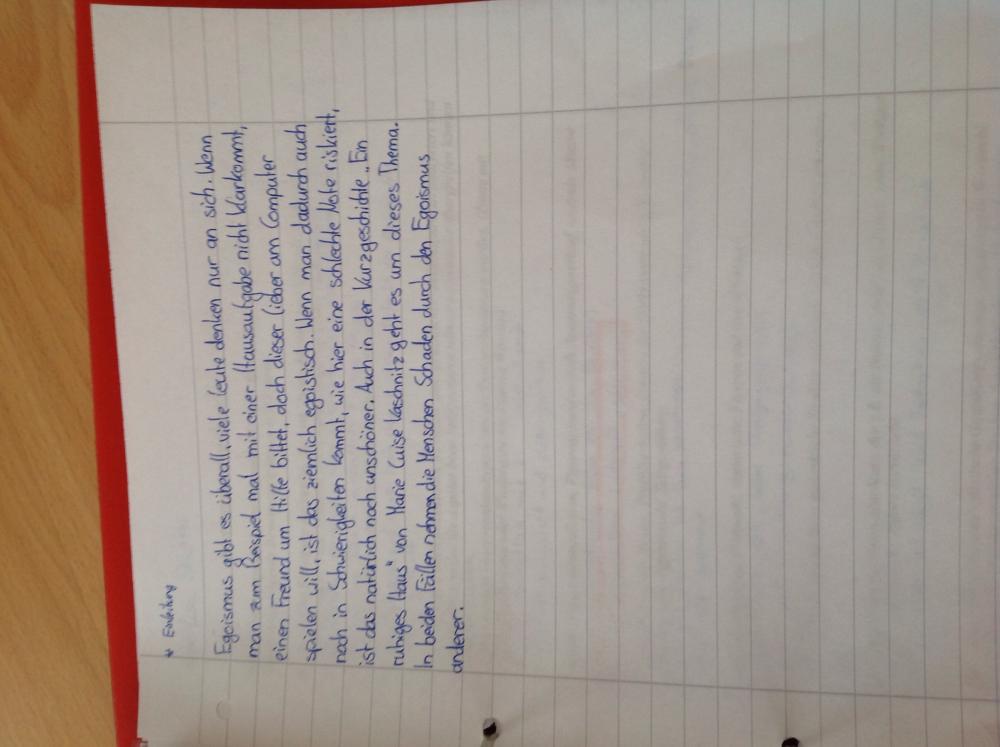 * Einleitung
Egoismus gibt es überall, viele Leute denken nur an sich. Wenn
man zum Beispiel mal mit einer Hausaufgabe nicht klarkommt,
einen Freund um Hilfe bittet, doch dieser lieber am Computer
spielen will, ist das ziemlich egoistisch. Wenn man dadurch auch
noch in Schwierigkeiten kommt, wie hier eine schlechte Note riskiert,
ist das natürlich noch unschöner. Auch in der Kurzgeschichte „Ein
ruhiges Haus" von Marie Luise Kaschnitz geht es um dieses Thema.
In beiden Fällen nehmen die Menschen Schaden durch den Egoismus
anderer.